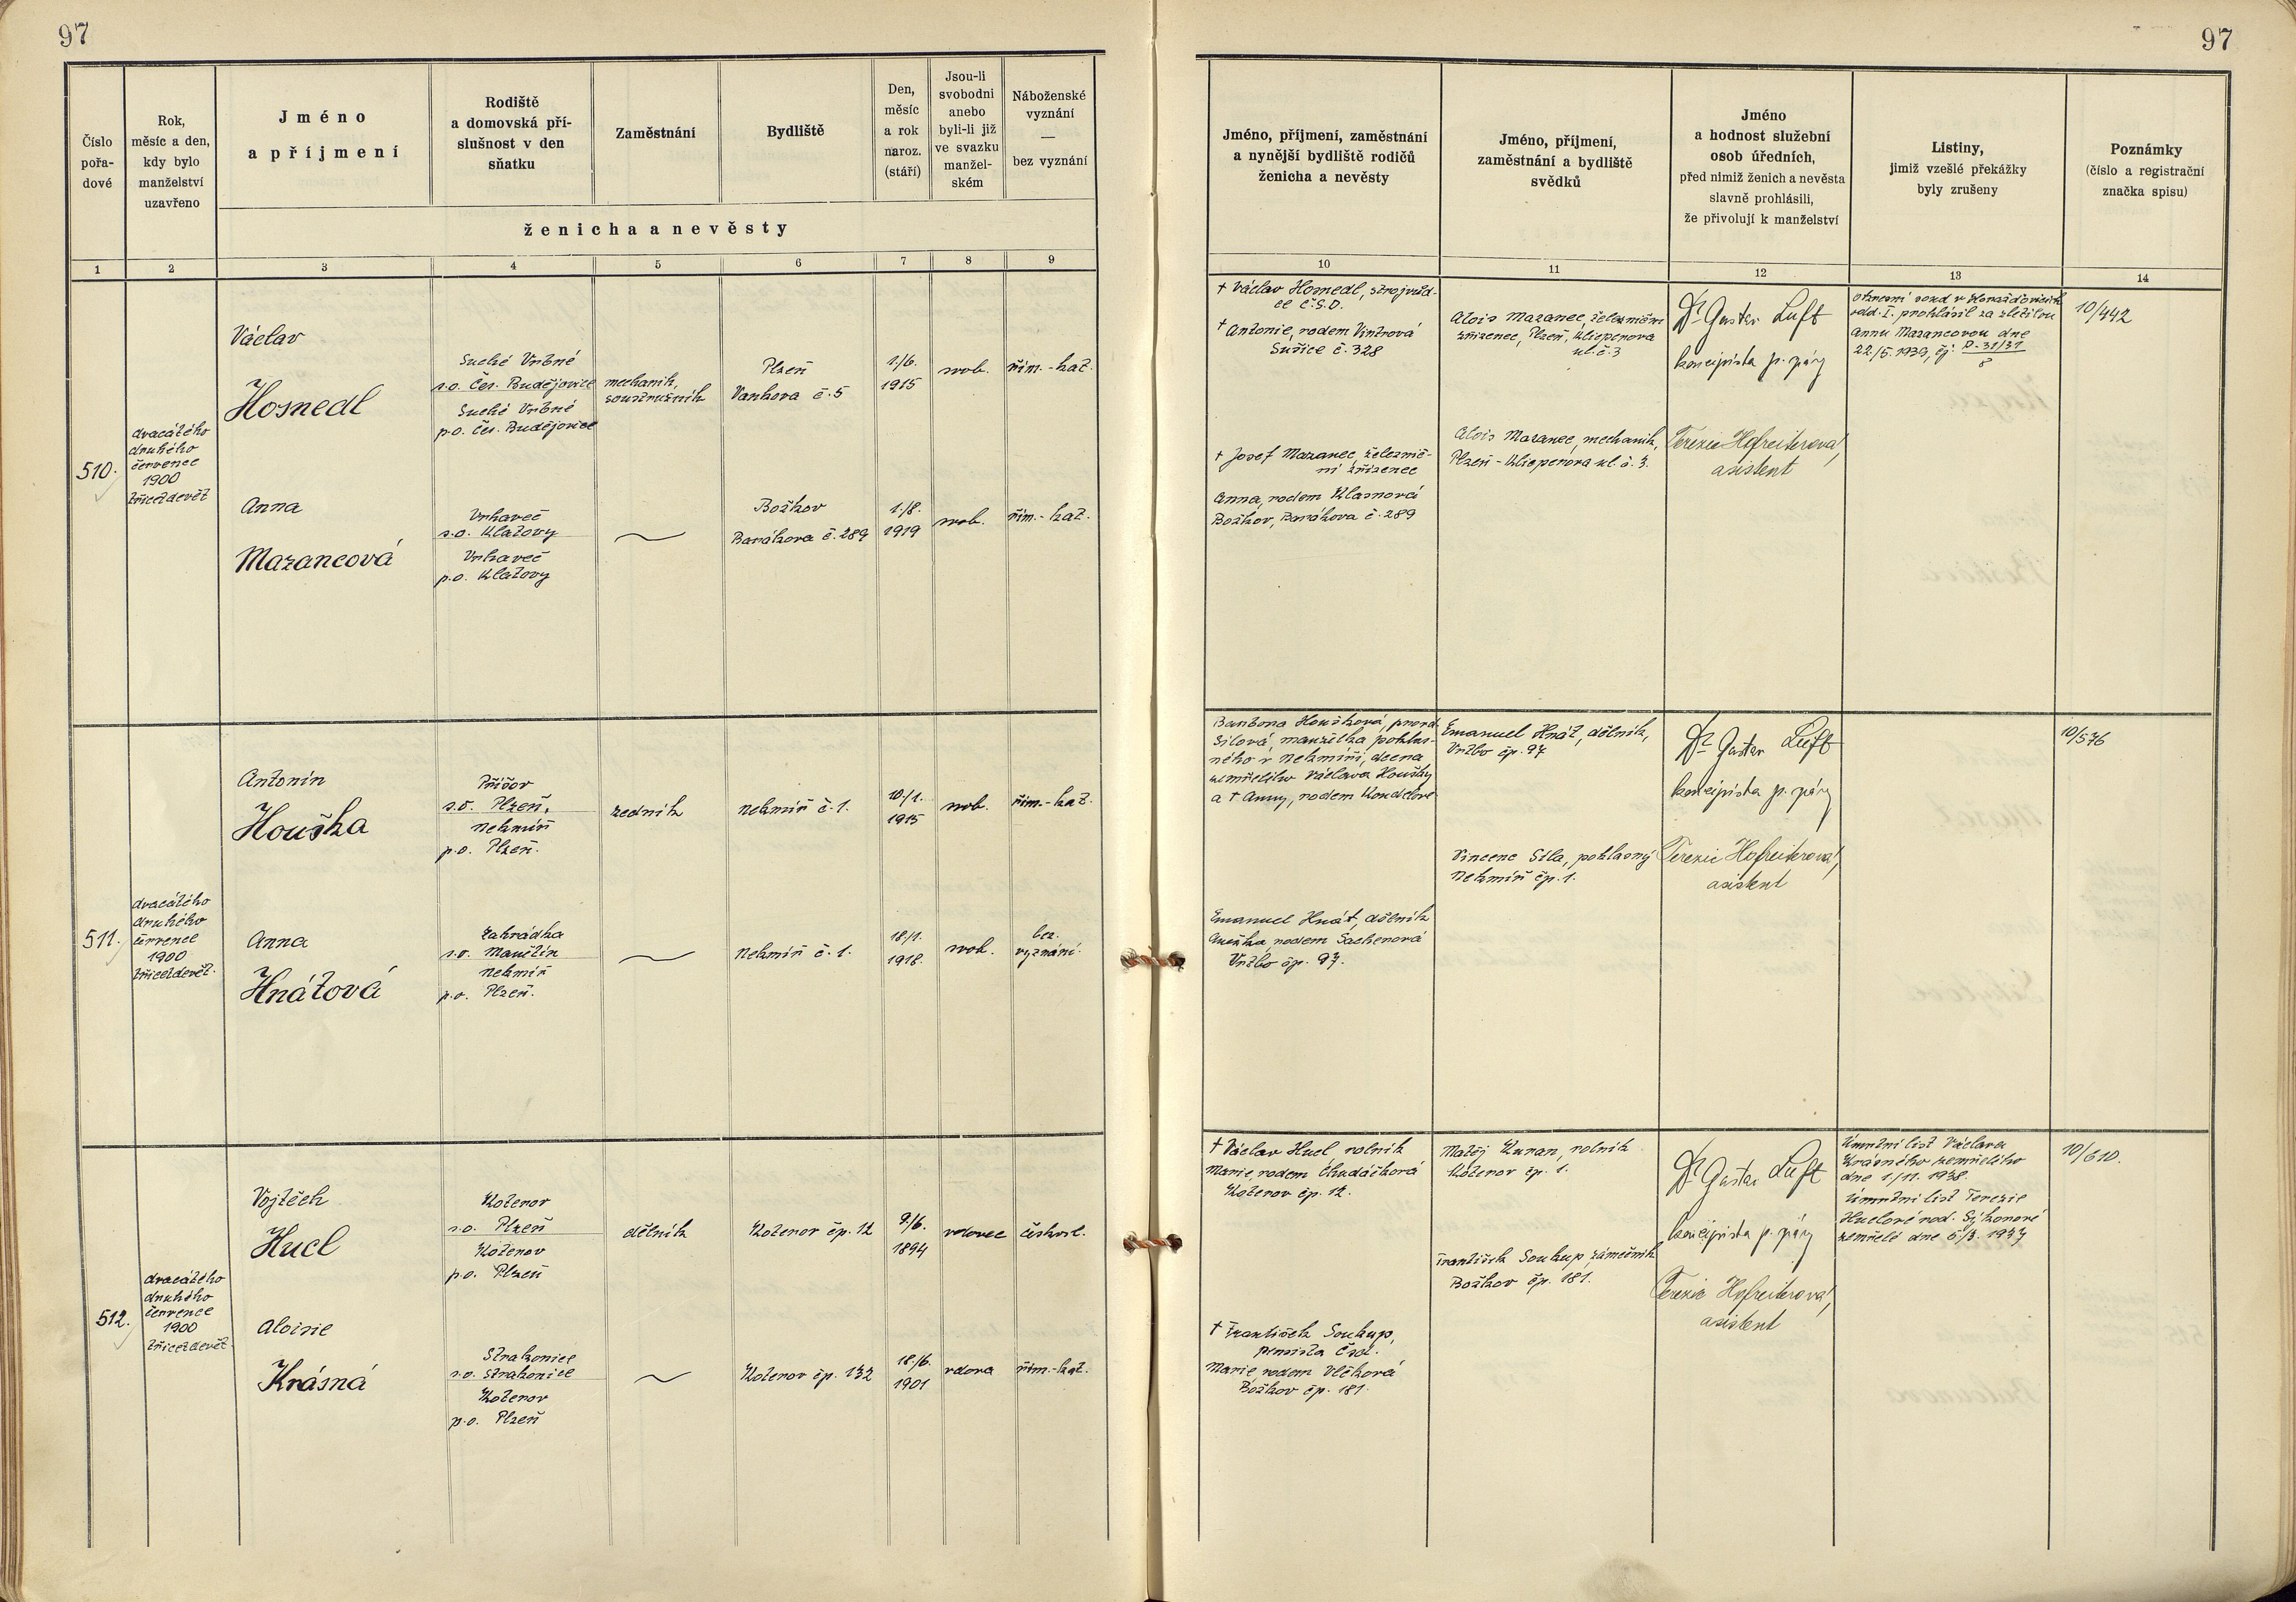 97
Číslo pořa- dové
Rok, měsíc a den, kdy bylo manželství uzavřeno
Jméno a příjmení
Rodiště a domovská pří- slušnost v den sňatku
Zaměstnání
Bydliště
Den, měsíc a rok naroz. (stáří)
Jsou-li svobodni anebo byli-li již ve svazku manžel- ském
Náboženské vyznání — bez vyznání
ženicha a nevěsty
1 2 3 4 5 6 7 8 9
510.
dvacátého
druhého
července
1900
třicetdevět
Václav
Hosnedl
Suché Vrbné
s.o. Čes. Budějovice
Suché Vrbné
p.o. Čes. Budějovice
mechanik,
soustružník
Plzeň
Vankova č. 5
1./6.
1915
svob.
řím.-kat.
Anna
Mazancová
Vrhaveč
s.o. Klatovy
Vrhaveč
p.o. Klatovy
Božkov
Barákova č. 289
1./8.
1919
svob.
řím.-kat.
511.
dvacátého
druhého
července
1900
třicetdevět.
Antonín
Houška
Příšov
s.o. Plzeň,
Nekmíř
p.o. Plzeň.
zedník
Nekmíř č. 1.
10./1.
1915
svob.
řím.-kat.
Anna
Hnátová
Zahrádka
s.o. Manětín
Nekmíř
p.o. Plzeň.
Nekmíř č. 1.
18./1.
1918.
svob.
bez.
vyznání.
512.
dvacátého
druhého
července
1900
třicetdevět
Vojtěch
Hucl
Koterov
s.o. Plzeň
Koterov
p.o. Plzeň
dělník
Koterov čp. 12
9./6.
1894
vdovec
českosl.
Aloisie
Krásná
Strakonice
s.o. Strakonice
Koterov
p.o. Plzeň
Koterov čp. 132
18./6.
1901
vdova
řím.-kat.
97
Jméno, příjmení, zaměstnání
a nynější bydliště rodičů
ženicha a nevěsty
Jméno, příjmení,
zaměstnání a bydliště
svědků
Jméno
a hodnost služební
osob úředních,
před nimiž ženich a nevěsta
slavně prohlásili,
že přivolují k manželství
Listiny,
jimiž vzešlé překážky
byly zrušeny
Poznámky
(číslo a registrační
značka spisu)
10 11 12 13 14
† Václav Hosnedl, strojvůd-
ce Č.S.D.
† Antonie, rodem Vintrová
Sušice č. 328
† Josef Mazanec, železnič-
ní zřízenec
Anna, rodem Klasnová
Božkov, Barákova č. 289
Alois Mazanec, železniční
zřízenec, Plzeň, Klieperova
ul. č. 3
Alois Mazanec, mechanik,
Plzeň - Klieperova ul. č. 3.
Dr. Gustav Luft
koncipista p. správy
Terezie Hofreiterová,
asistent
Okresní soud v Horažďovicích
odd. I. prohlásil za zletilou
Annu Mazancovou dne
22./5. 1939, čj: P-31/31
8
10/442
Barbora Houšková, provd.
Sílová, manželka pohlas-
ného v Nekmíři, dcera
zemřelého Václava Houšky
a † Anny, rodem Koudelové
Emanuel Hnát, dělník
Anežka, rodem
Vrtbo čp. 97.
Emanuel Hnát, dělník,
Vrtbo čp. 97
Vincenc Síla, pohlasný
Nekmíř čp. 1.
Dr. Gustav Luft
koncipista p. správy
Terezie Hofreiterová,
asistent
10/576
† Václav Hucl rolník
Marie, rodem Chudáčková
Koterov čp. 12.
† František Soukup,
pensista Čsd.
Marie, rodem Vlčková
Božkov čp. 181.
Matěj Kunan, rolník
Koterov čp. 1.
František Soukup, zámečník
Božkov čp. 181.
Dr. Gustav Luft
koncipista p. správy
Terezie Hofreiterová,
asistent
Úmrtní list Václava
Krásného zemřelého
dne 1./11. 1938.
Úmrtní list Terezie
Huclové rod. Sýkorové
zemřelé dne 5/3. 1937
10/610.